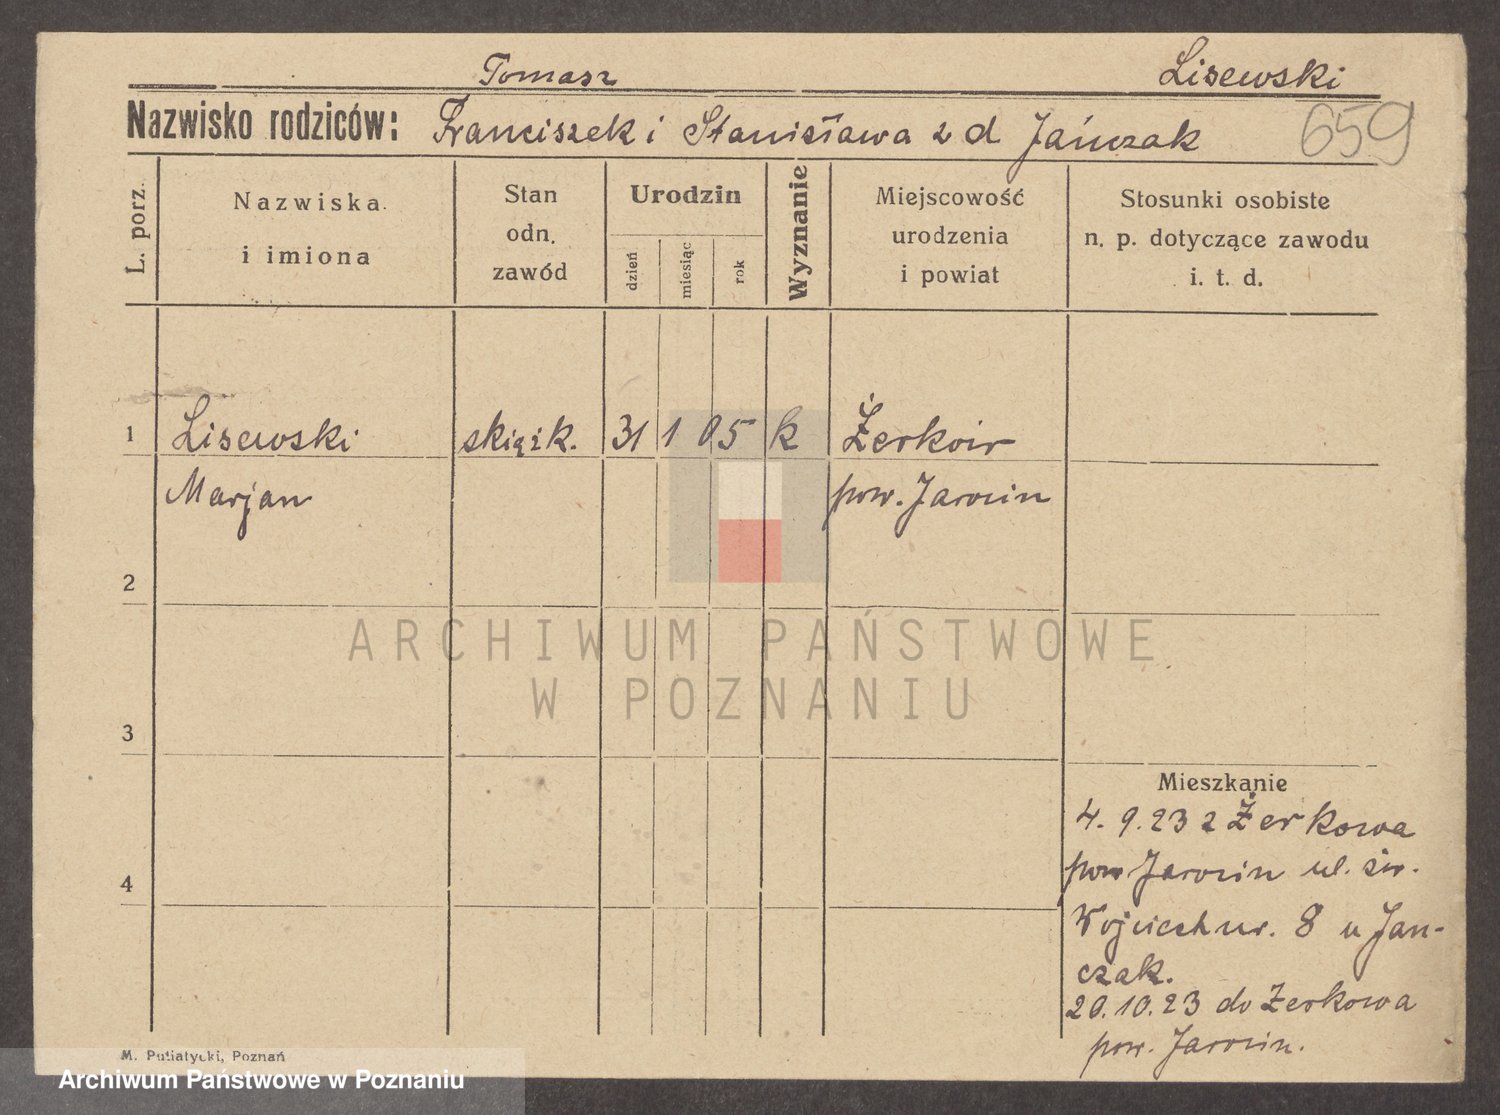 Tomasz Lisewski
Nazwisko rodziców: Franciszek i Stanisława z d Jańczak 659
L. porz.
Nazwiska
i imiona
Stan
odn.
zawód
Urodzin
dzień
miesiąc
rok
Wyznanie
Miejscowość
urodzenia
i powiat
Stosunki osobiste
n. p. dotyczące zawodu
i. t. d.
1 Lisewski 31 1 05 k Żerków
Marjan pow. Jarocin
2
ARCHIWUM PAŃSTWOWE
W POZNANIU
3
Mieszkanie
4. 9. 23 z Żerkowa
pow Jarocin ul. św.
4
Wojciech nr. 8 u Jan-
czak.
20. 10. 23 do Żerkowa
pow. Jarocin.
M. Putiatycki, Poznań
Archiwum Państwowe w Poznaniu